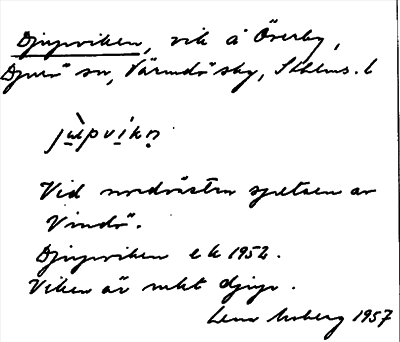 Djupviken, vik å Överby,
Djurö sn, Värmdö skg, Sthlms. l
jùpvíkn̥
Vid nordvästra spetsen av
Vindö.
Djupviken ek 1952.
Viken är rätt djup.
Lena Moberg 1957